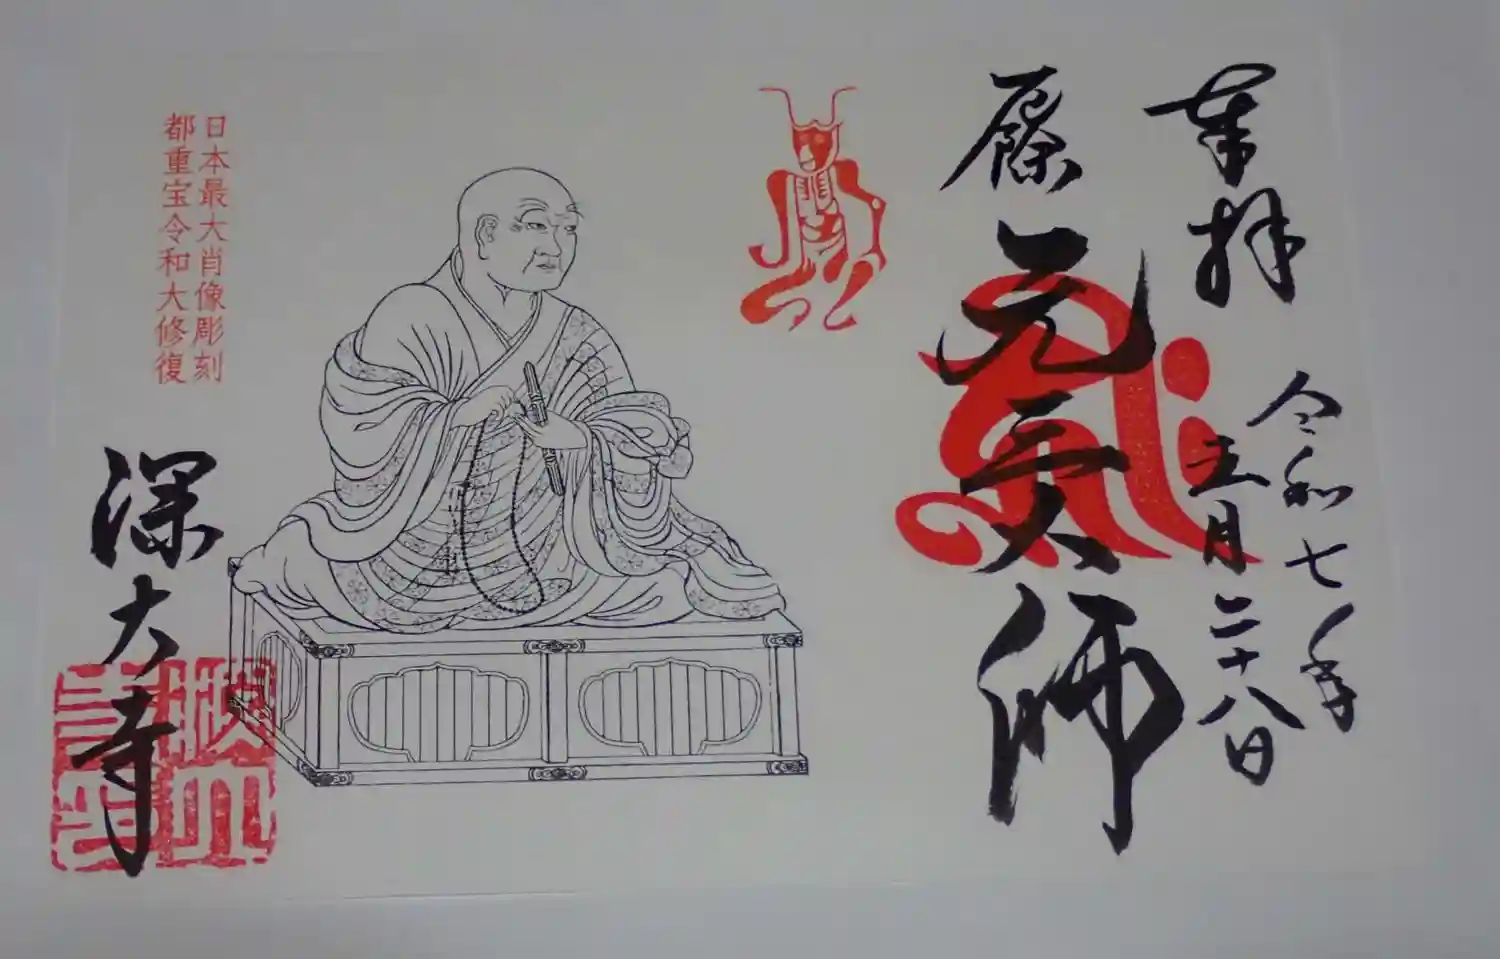 奉拝
令和七年
五月二十八日
厄除
元三大師
日本最大肖像彫刻
都重宝令和大修復
深大寺